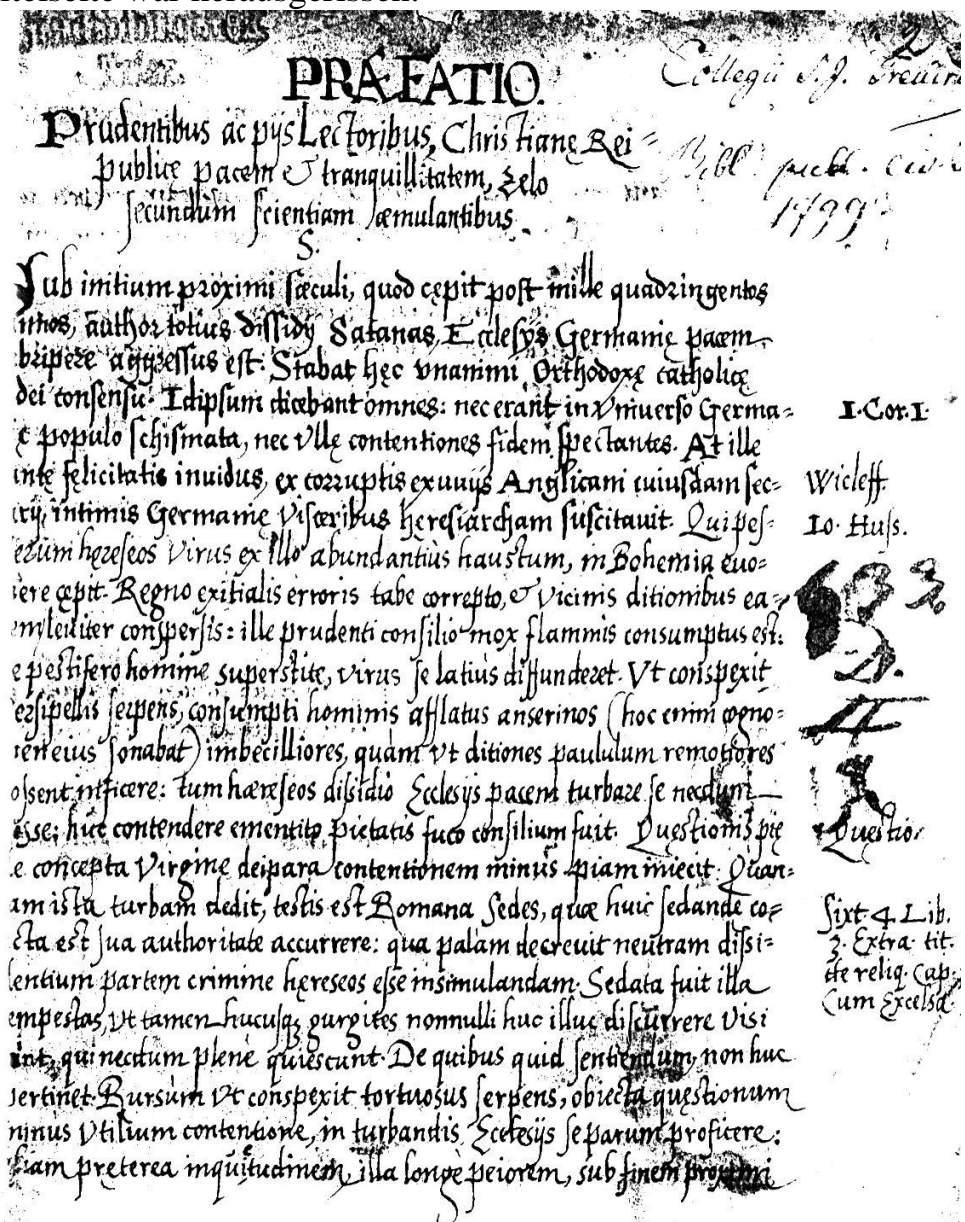 titelseite war herausgerissen.
Stadtbibliothek
Trier.
2
PRÆFATIO.
Collegii S. J. Treuir
Prudentibus ac pijs Lectoribus, Christianę Rei=
publicę pacem & tranquillitatem, zelo
Bibl. publ. civ.
secundum scientiam æmulantibus
1799.
S.
Sub initium proximi sæculi, quod cępit post mille quadringentos
nnos, author totius dissidij Satanas, Ecclesijs Germanię pacem
bripere aggressus est. Stabat hęc vnanimi Orthodoxę catholicę
dei consensu. Idipsum dicebant omnes: nec erant in vniuerso Germa=
I. Cor. I.
ę populo schismata, nec vllę contentiones fidem spectantes. At ille
intę fęlicitatis inuidus, ex corruptis exuuijs Anglicani cuiusdam sec=
Wicleff.
rij, intimis Germanię visceribus hęresiarcham suscitauit. Qui pes=
Io. Huss.
erum hęreseos virus ex illo abundantiùs haustum, in Bohemia euo=
ere cępit. Regno exitialis erroris tabe correpto, & vicinis ditionibus ea=
em leuiter conspersis: ille prudenti consilio mox flammis consumptus est:
e pestifero homine superstite, virus se latiùs diffunderet. Vt conspexit
ersipellis serpens, consumpti hominis afflatus anserinos (hoc enim cogno=
en eius sonabat) imbecilliores, quàm vt ditiones paululum remotiores
ossent inficere: tum hæreseos dissidio Ecclesijs pacem turbare se necdum
osse; huc contendere ementito pietatis fuco consilium fuit. Quęstionis pię
Quęstio.
e concepta Virgine deipara contentionem minùs piam iniecit. Quan=
am ista turbam dedit, testis est Romana Sedes, quæ huic sedandę co=
Sixt. 4. Lib.
cta est sua authoritate accurrere: qua palam decreuit neutram dissi=
3. Extra. tit.
entium partem crimine hęreseos esse insimulandam. Sedata fuit illa
de reliq. Cap.
empestas, vt tamen hucusq; gurgites nonnulli huc illuc discurrere visi
Cum Excelsa.
int, qui necdum plenè quiescunt. De quibus quid sentiendum, non huc
pertinet. Rursùm vt conspexit tortuosus serpens, obiecta quęstionum
minus vtilium contentione, in turbandis Ecclesijs se parum proficere:
liam preterea inquietudinem, illa longè peiorem, sub finem proximi